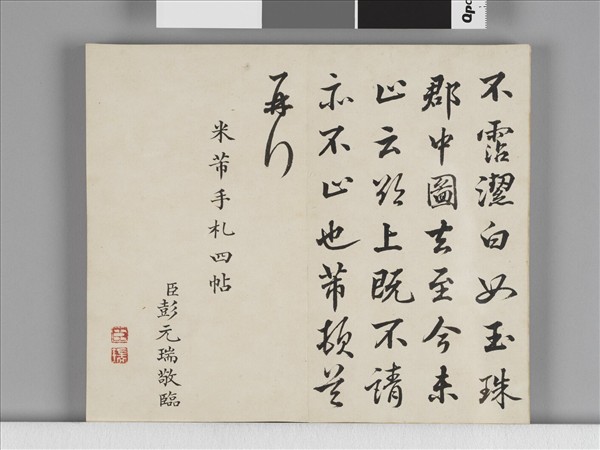 不霑潔白如玉珠
郡中圖去至今未
止云欲上既不請
亦不止也芾頓首
再行
米芾手札四帖
臣彭元瑞敬臨